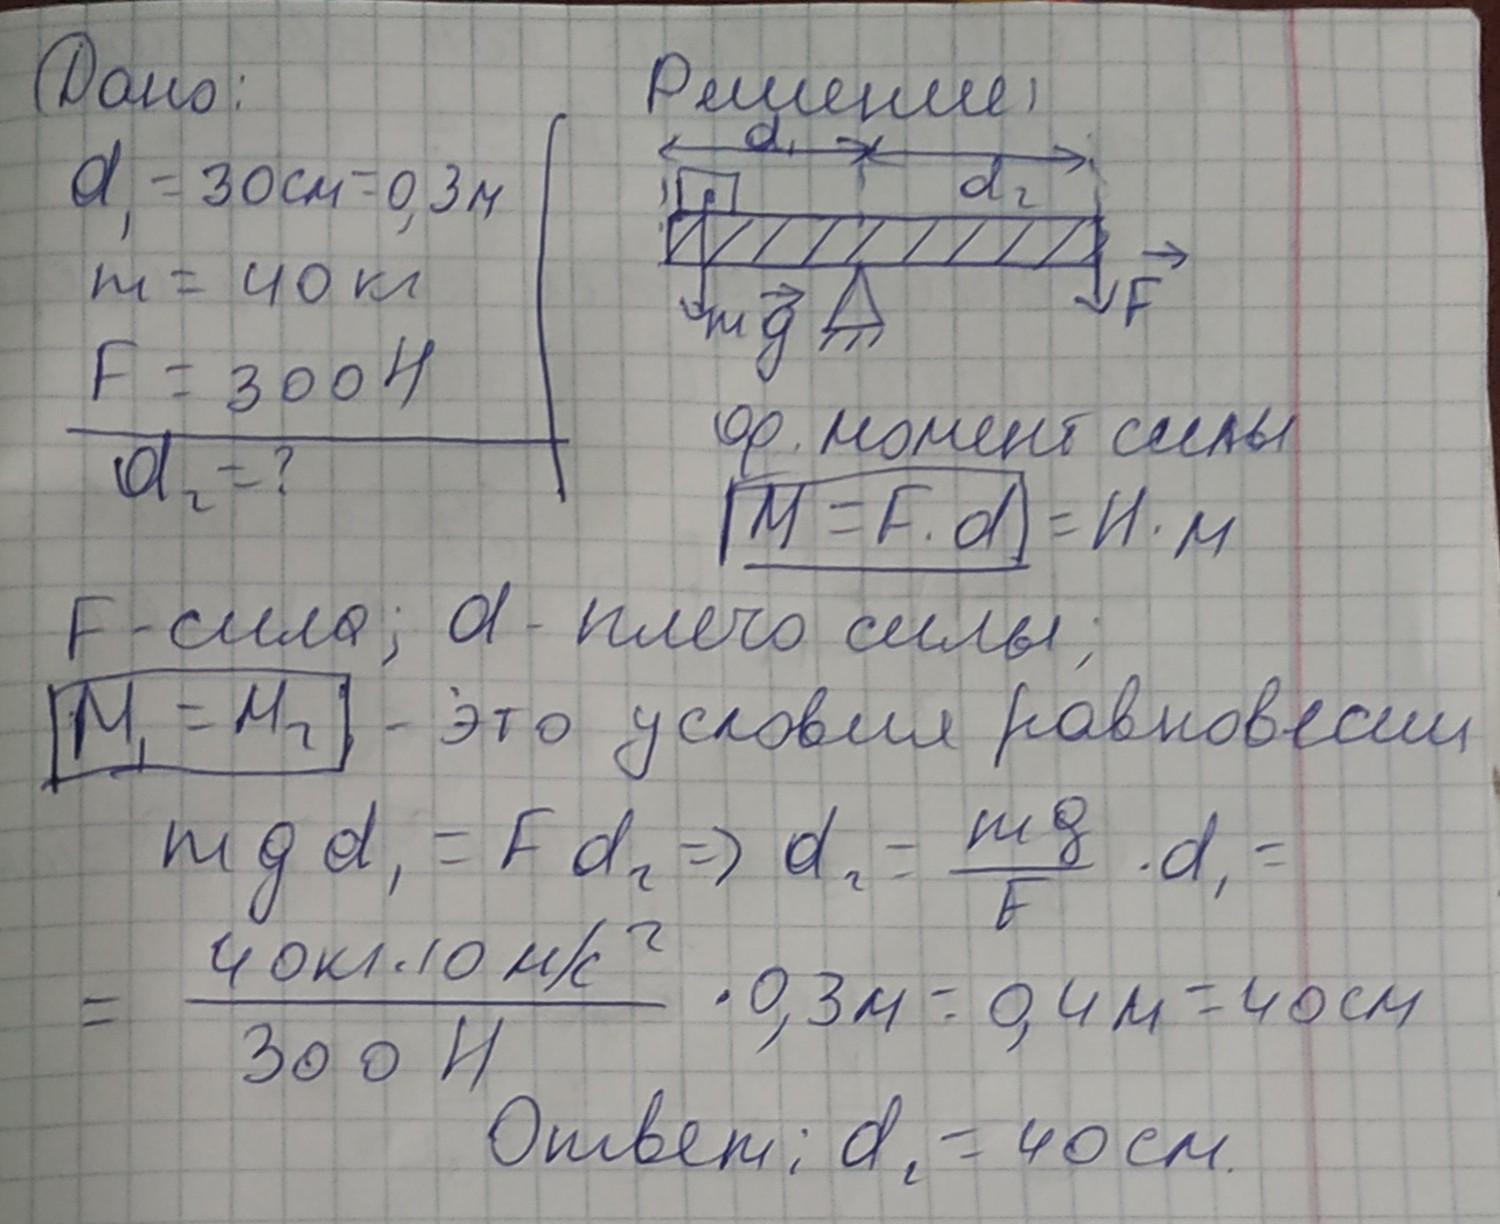 Дано:
d₁ = 30см = 0,3м
m = 40 кг
F = 300 Н
d₂ = ?
Решение:
d₁
d₂
mg
F
ф. момент силы
M = F · d = Н · м
F - сила; d - плечо силы;
M₁ = M₂ - это условия равновесии
mgd₁ = Fd₂ => d₂ = mg/F · d₁ =
= 40кг · 10 м/с²/300 Н · 0,3м = 0,4м = 40см
Ответ: d₂ = 40см.